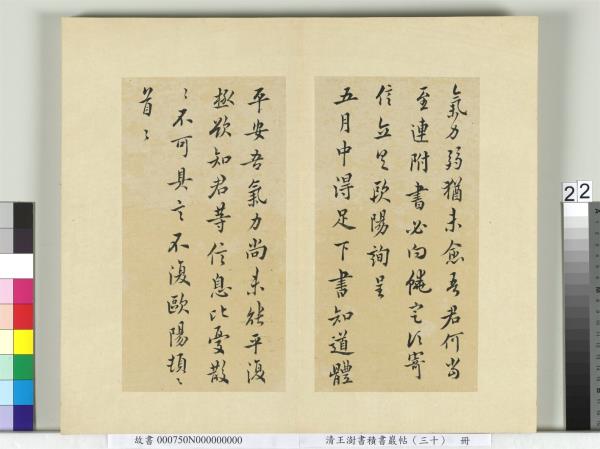 氣力弱猶未愈吾君何當
至連附書必向饒定以寄
信立具歐陽詢呈
五月中得足下書知道體
平安吾氣力尚未能平復
極欲知君等信息比憂散
〻不可具言不復歐陽頓〻
首〻
22
故書 000750N000000000
清王澍書積書巖帖(三十) 冊